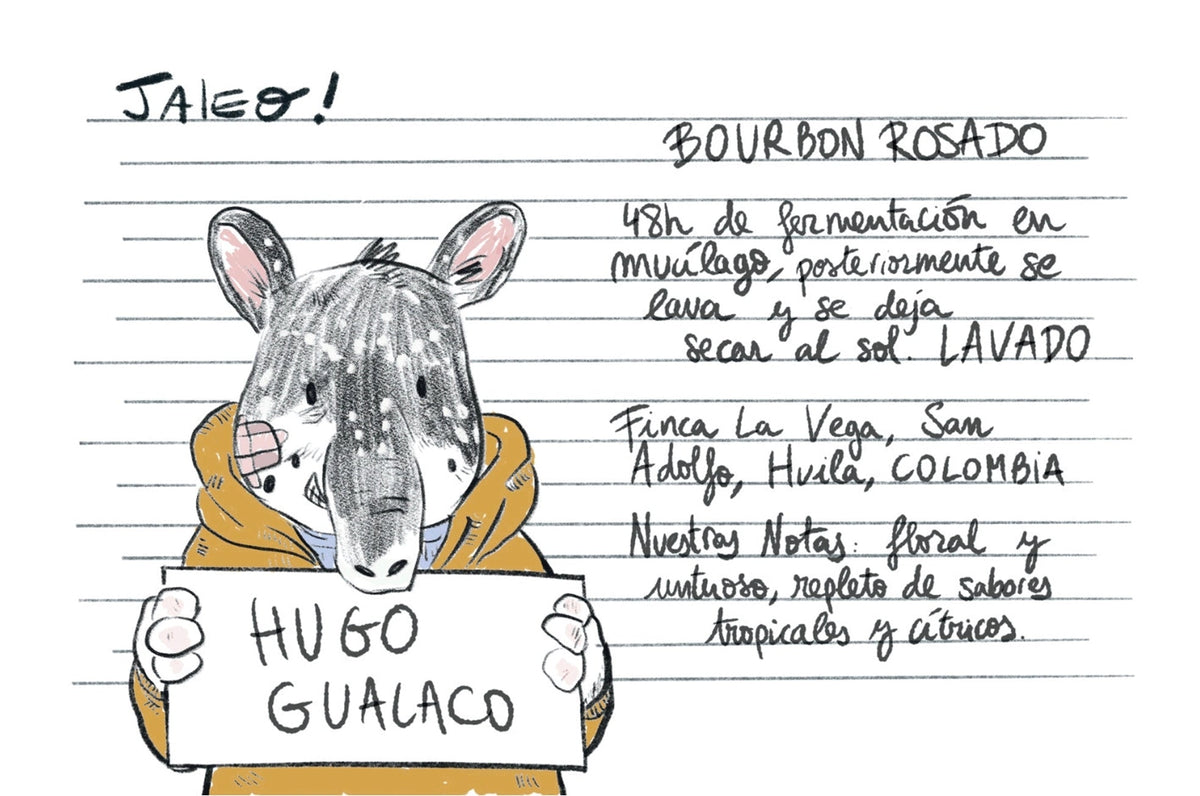 JALEO!
BOURBON ROSADO
48h de fermentación en
mucílago, posteriormente se
lava y se deja
secar al sol. LAVADO
Finca La Vega, San
Adolfo, Huila, COLOMBIA
Nuestras Notas: floral y
untuoso, repleto de sabores
tropicales y cítricos.
HUGO
GUALACO